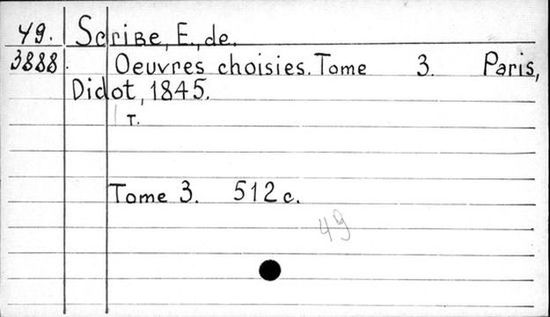 49. Scribe, E., de.
3888. Oeuvres choisies. Tome 3. Paris,
Didot, 1845.
т.
Tome 3. 512 c.
49